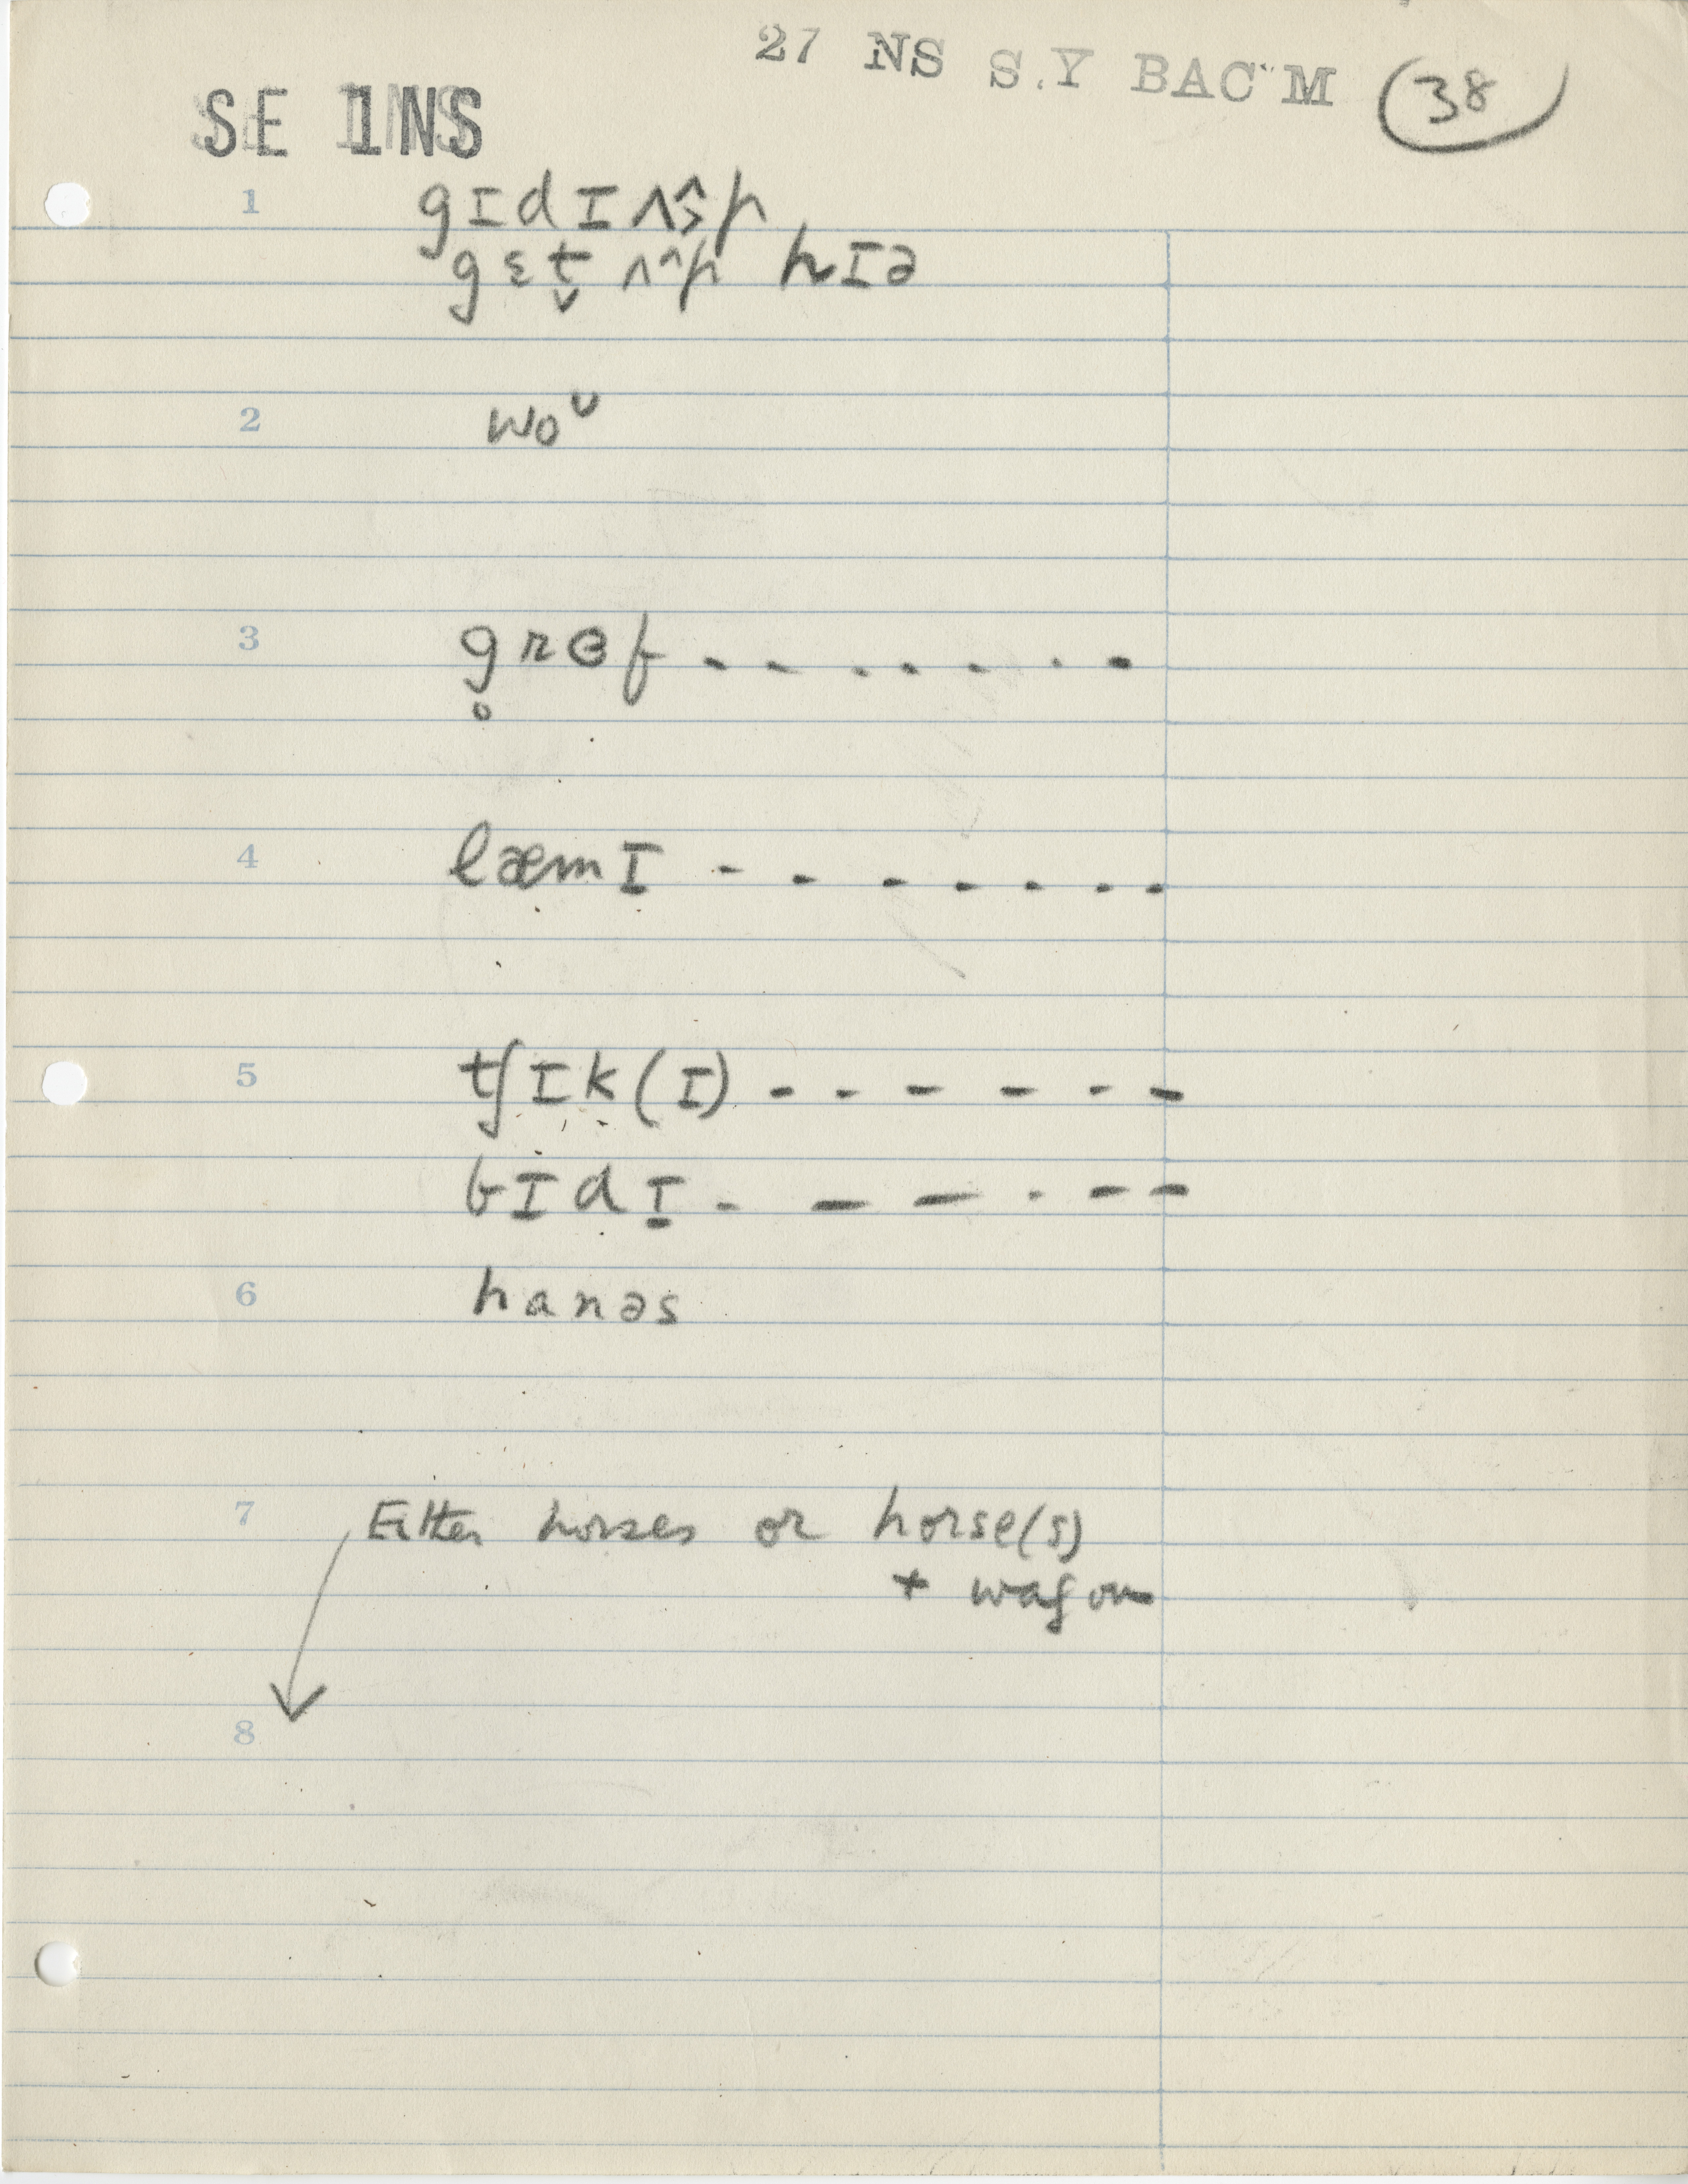 27 NS S.Y BAC M 38
SE 1NS
1 gɪdɪ ʌp
gɛt̬ ʌp hɪə
2 woᵛ
3 g̥rɵf - - - - - - -
4 læmɪ - - - - - - -
5 tʃɪk(ɪ) - - - - - -
bɪdɪ - - - - - -
6 hanəs
7 Either horses or horse(s)
+ wagon
8